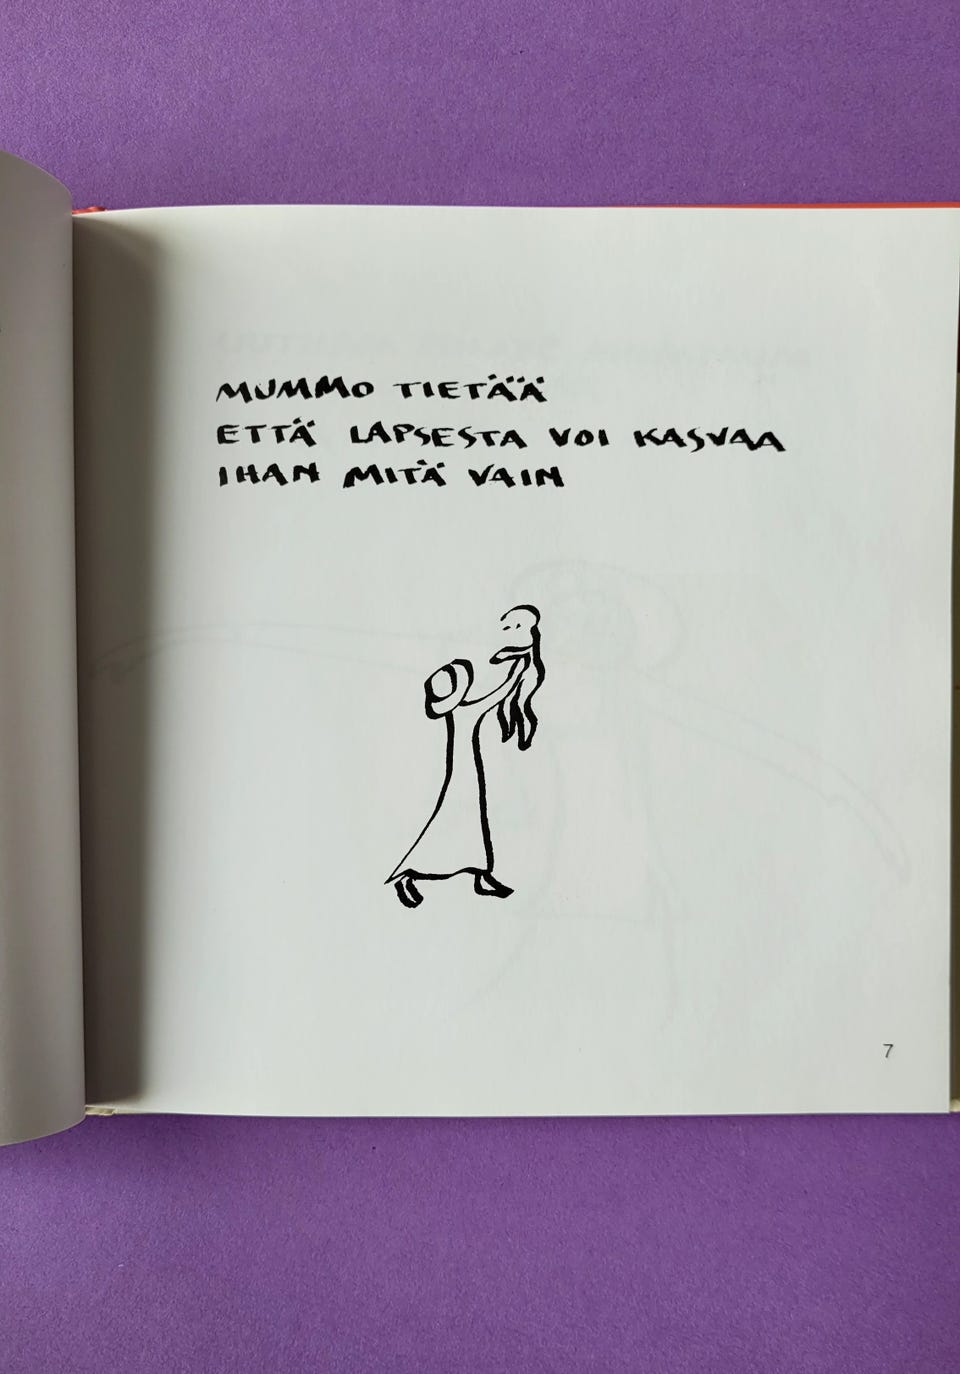 MUMMO TIETÄÄ
ETTÄ LAPSESTA VOI KASVAA
IHAN MITÄ VAIN
7